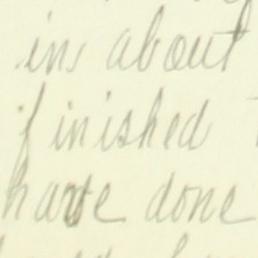 in about
finished
have done